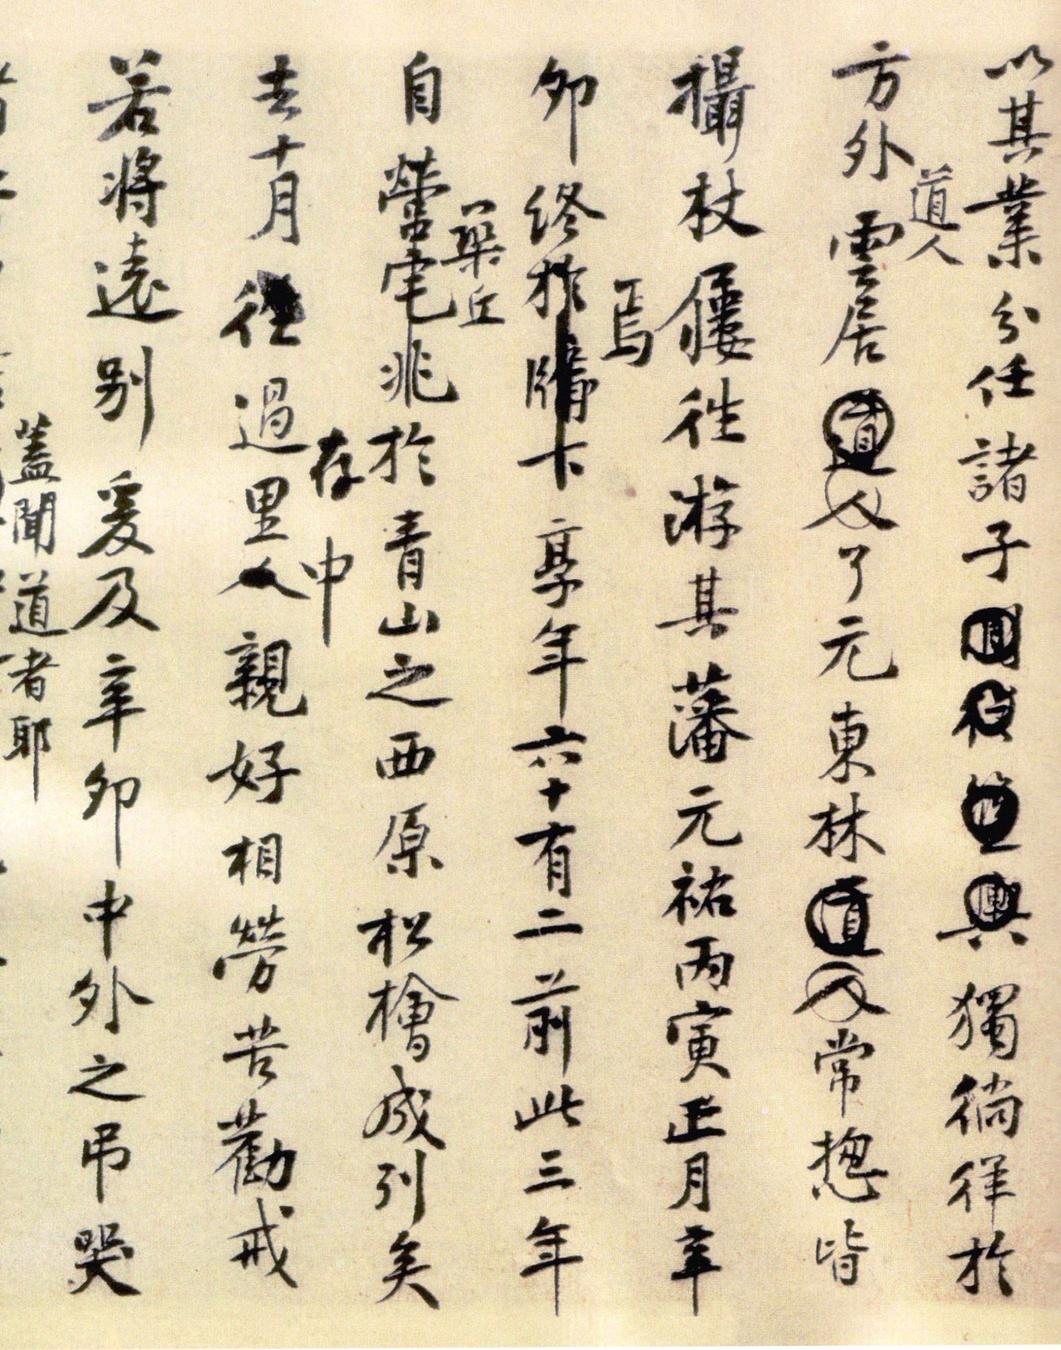 以其業分任諸子獨徜徉於
道人
方外雲居道人了元東林道人常揔皆
攝杖屨往游其藩元祐丙寅正月辛
焉
卯終於牖下享年六十有二前此三年
築丘
自營宅兆於青山之西原松檜成列矣
存中
去十月過里人親好相勞苦勸戒
若將遠别爰及辛卯中外之弔哭
蓋聞道者耶